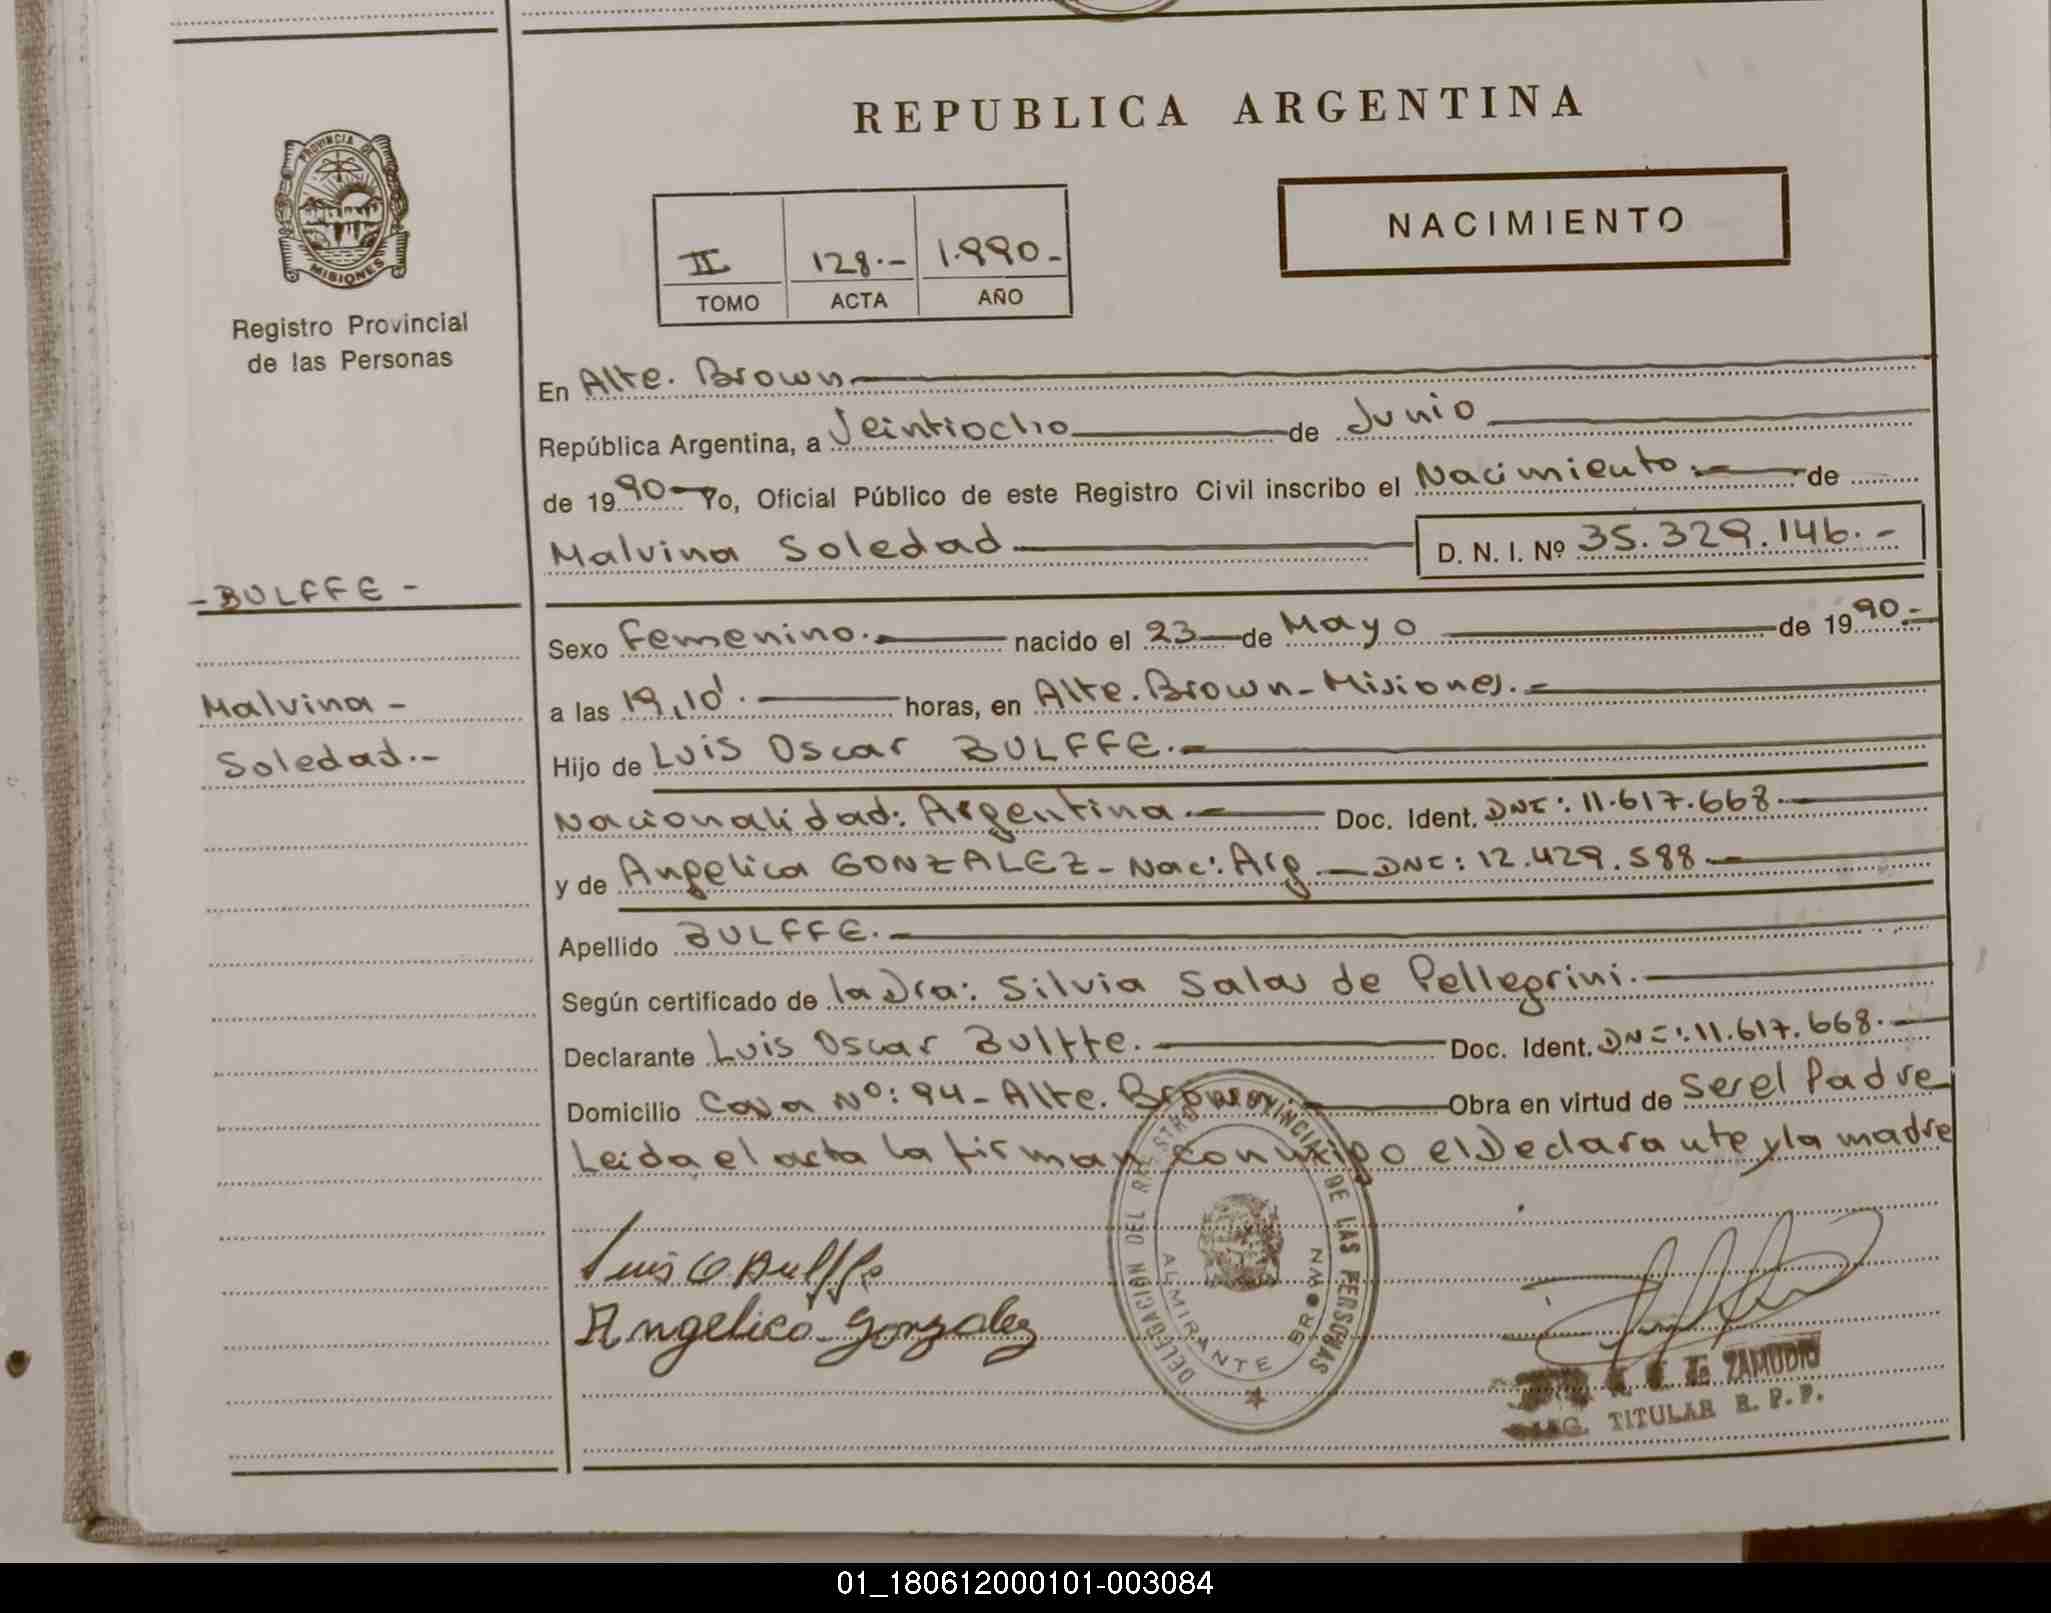 REPUBLICA ARGENTINA
PROVINCIA DE
MISIONES
Registro Provincial
de las Personas
NACIMIENTO
II 128.- 1.990-
TOMO ACTA AÑO
En Alte. Brown
República Argentina, a Veintiocho de Junio
de 1990 Yo, Oficial Público de este Registro Civil inscribo el Nacimiento.- de
Malvina Soledad D. N. I. Nº 35.329.146.-
- BULFFE -
Malvina -
Soledad.-
Sexo Femenino.- nacido el 23 de Mayo de 1990.-
a las 19,10'. horas, en Alte. Brown - Misiones.-
Hijo de Luis Oscar BULFFE.-
Nacionalidad: Argentina.- Doc. Ident. DNI: 11.617.668.-
y de Angelica GONZALEZ - Nac: Arg.- DNI: 12.429.588-
Apellido BULFFE.-
Según certificado de la Dra: Silvia Salas de Pellegrini.-
Declarante Luis Oscar Bulffe.- Doc. Ident. DNI: 11.617.668.-
Domicilio Casa Nº: 94 - Alte. Brown.- Obra en virtud de ser el Padre
Leida el acta la firman conmigo el Declarante y la madre
Luis O Bulffe
Angelica Gonzalez
DELEGACION DEL REGISTRO PROVINCIAL DE LAS PERSONAS
ALMIRANTE BROWN
ZAMUDIO
TITULAR R. P. P.
01_180612000101-003084